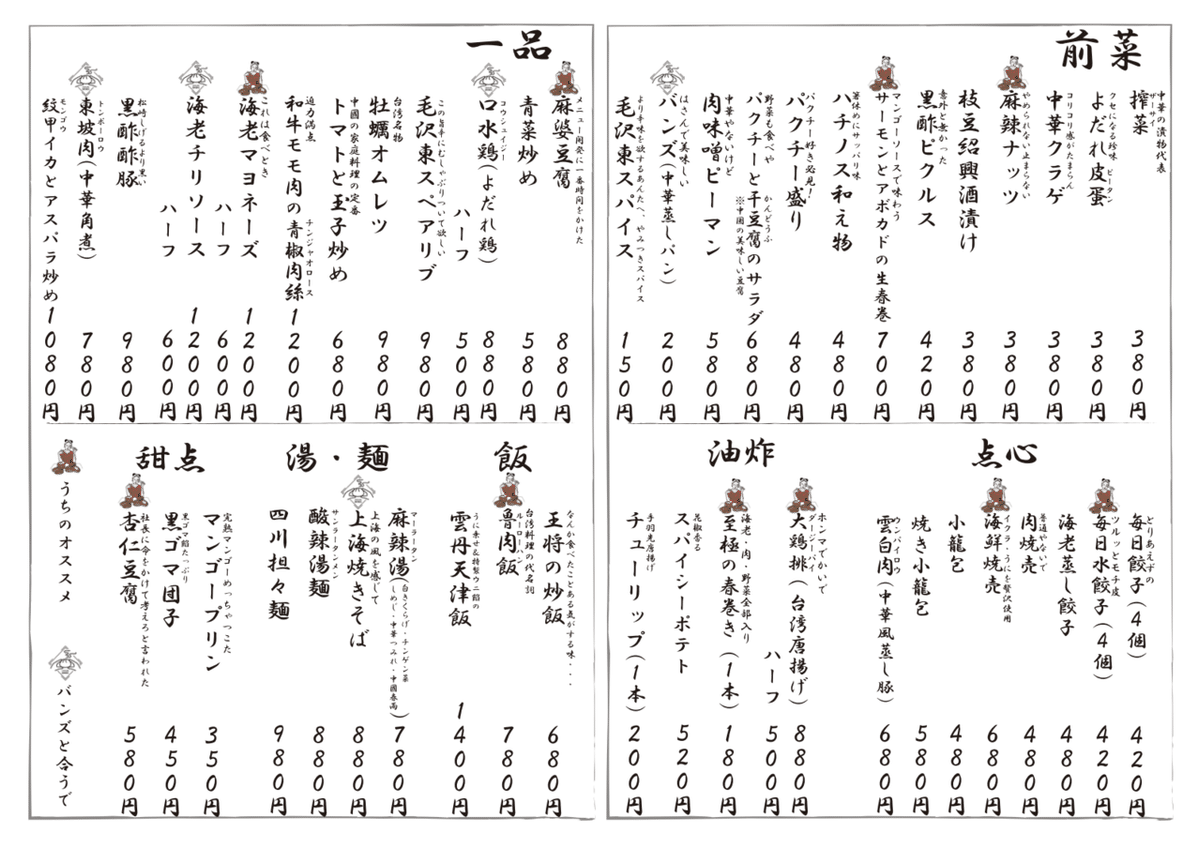 前菜
中華の漬物代表
搾菜 ザーサイ 380円
クセになる珍味 ピータン
よだれ皮蛋 380円
コリコリ感がたまらん
中華クラゲ 380円
やめられない止まらない
麻辣ナッツ 380円
枝豆紹興酒漬け 380円
意外と無かった
黒酢ピクルス 420円
マンゴーソースで味わう
サーモンとアボカドの生春巻 700円
箸休めにサッパリ味
ハチノス和え物 480円
パクチー好き必見!
パクチー盛り 480円
野菜も食べや かんどうふ
パクチーと干豆腐のサラダ 680円
※中国の美味しい豆腐
中華やないけど
肉味噌ピーマン 580円
はさんで美味しい
バンズ(中華蒸しパン) 200円
より辛味を欲するあんたへ、やみつきスパイス
毛沢東スパイス 150円
一品
メニュー開発に一番時間をかけた
麻婆豆腐 880円
青菜炒め 580円
コウシュイジー
口水鶏(よだれ鶏) 880円
ハーフ 500円
この旨辛にむしゃぶりついて欲しい
毛沢東スペアリブ 980円
台湾名物
牡蠣オムレツ 980円
中国の家庭料理の定番
トマトと玉子炒め 680円
迫力満点 チンジャオロース
和牛モモ肉の青椒肉絲 1200円
これは食べとき
海老マヨネーズ 1200円
ハーフ 600円
海老チリソース 1200円
ハーフ 600円
松崎しげるより黒い
黒酢酢豚 980円
トンポーロウ
東坡肉(中華角煮) 780円
モンゴウ
紋甲イカとアスパラ炒め 1080円
点心
とりあえずの
毎日餃子(4個) 420円
ツルッとモチ皮
毎日水餃子(4個) 420円
海老蒸し餃子 480円
普通やないで
肉焼売 480円
イクラ・うにを贅沢使用
海鮮焼売 680円
小籠包 480円
焼き小籠包 580円
ウンパイロウ
雲白肉(中華風蒸し豚) 680円
油炸
ホンマでかいで
ダージーパイ
大鶏排(台湾唐揚げ) 880円
ハーフ 500円
海老・肉・野菜全部入り
至極の春巻き(1本) 180円
花椒香る
スパイシーポテト 520円
手羽先唐揚げ
チューリップ(1本) 200円
飯
なんか食べたことある気がする味・・・
王将の炒飯 680円
台湾料理の代名詞
ルーローハン
魯肉飯 780円
うに乗せ&特製ウニ餡の
雲丹天津飯 1400円
湯・麺
マーラータン
麻辣湯(白きくらげ・チンゲン菜
しめじ・中華つみれ・中国春雨) 780円
上海の風を感じて
上海焼きそば 880円
サンラータンメン
酸辣湯麺 880円
四川担々麺 980円
甜点
完熟マンゴーめっちゃつこた
マンゴープリン 350円
黒ゴマ餡たっぷり
黒ゴマ団子 450円
社長に命をかけて考えろと言われた
杏仁豆腐 580円
うちのオススメ
バンズと合うで